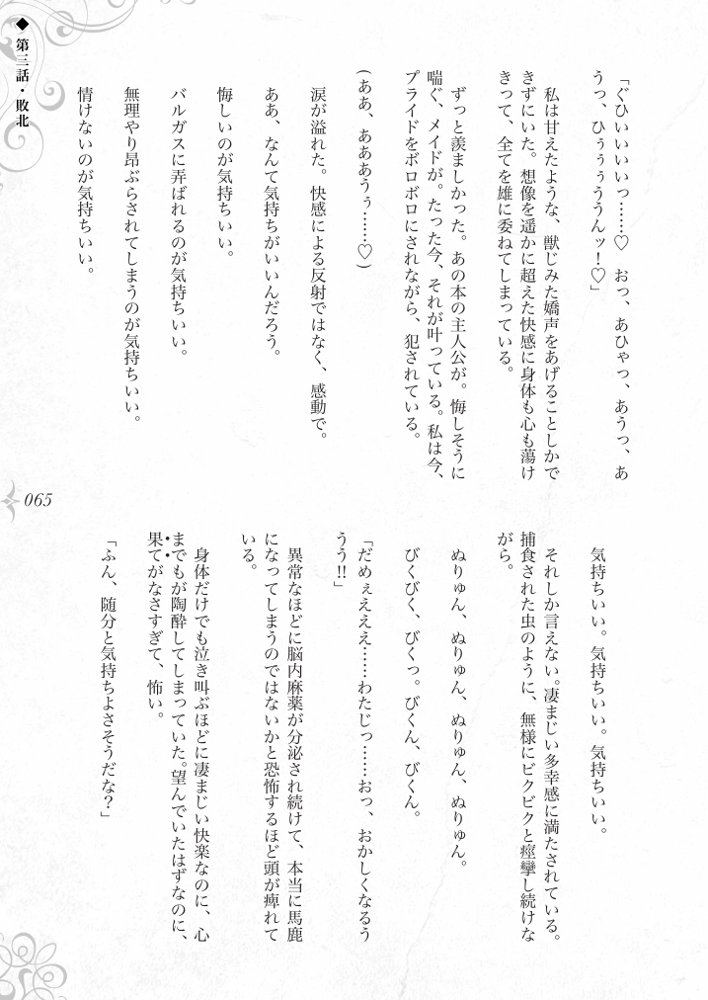 ◆ 第三話・敗北
「ぐひいいいいっ……♡　おっ、あひゃっ、あうっ、あ
うっ、ひぅぅぅううんッ！♡」
　私は甘えたような、獣じみた嬌声をあげることしかで
きずにいた。想像を遥かに超えた快感に身体も心も蕩け
きって、全てを雄に委ねてしまっている。
　ずっと羨ましかった。あの本の主人公が。悔しそうに
喘ぐ、メイドが。たった今、それが叶っている。私は今、
プライドをボロボロにされながら、犯されている。
(ああ、あああうぅ……♡)
　涙が溢れた。快感による反射ではなく、感動で。
　ああ、なんて気持ちがいいんだろう。
　悔しいのが気持ちいい。
　バルガスに弄ばれるのが気持ちいい。
　無理やり昂ぶらされてしまうのが気持ちいい。
　情けないのが気持ちいい。
　気持ちいい。気持ちいい。気持ちいい。
　それしか言えない。凄まじい多幸感に満たされている。
捕食された虫のように、無様にビクビクと痙攣し続けな
がら。
　ぬりゅん、ぬりゅん、ぬりゅん、ぬりゅん。
　びくびく、びくっ。びくん、びくん。
「だめぇえええ……わたじっ……おっ、おかしくなるう
うう!!」
　異常なほどに脳内麻薬が分泌され続けて、本当に馬鹿
になってしまうのではないかと恐怖するほど頭が痺れて
いる。
　身体だけでも泣き叫ぶほどに凄まじい快楽なのに、心
までもが陶酔してしまっていた。望んでいたはずなのに、
果てがなさすぎて、怖い。
「ふん、随分と気持ちよさそうだな？」
065